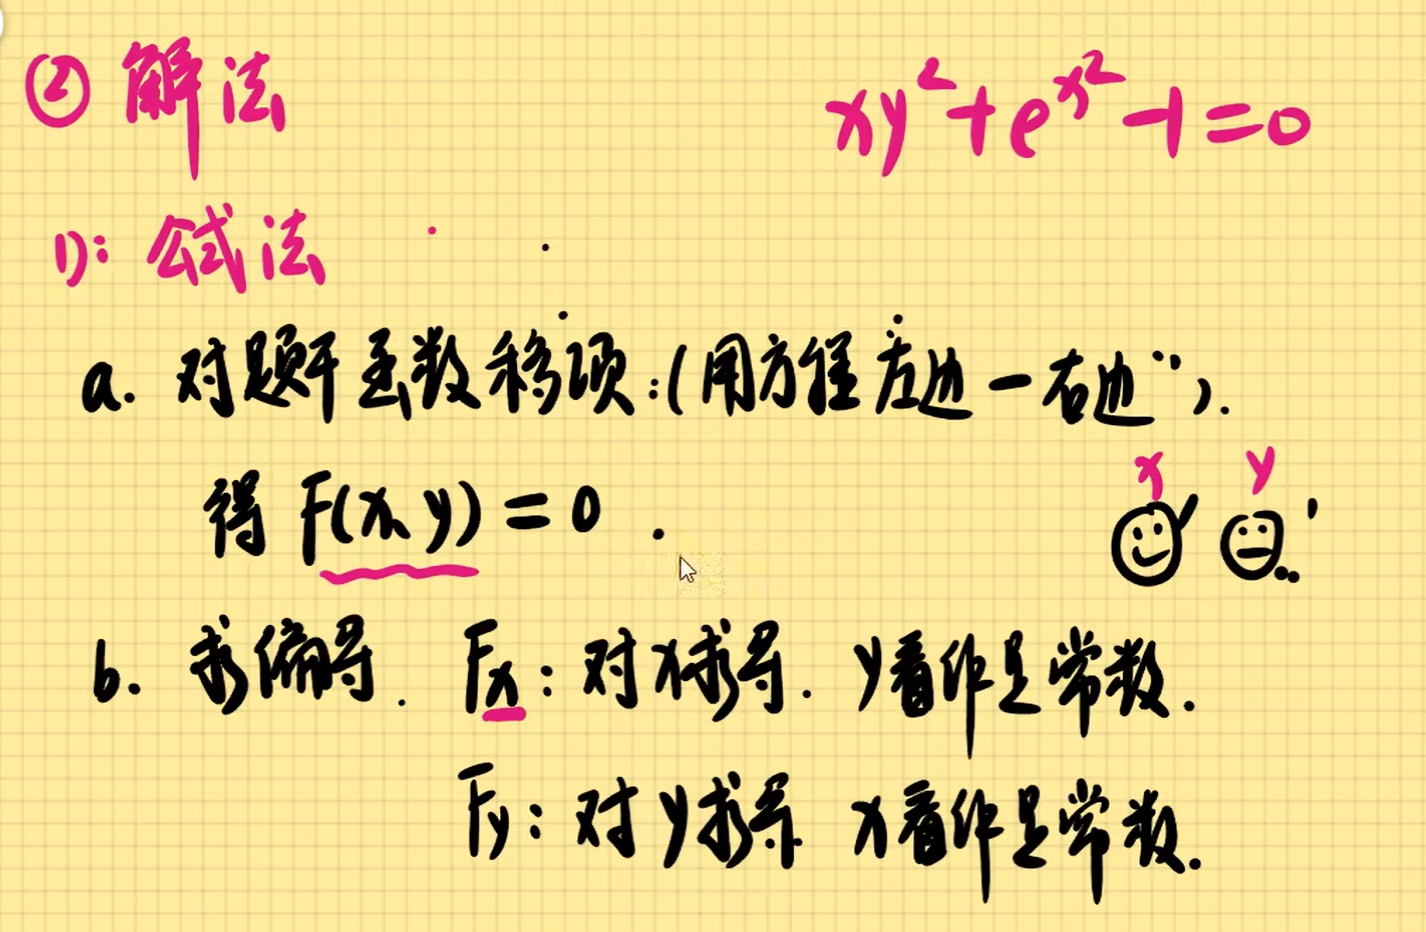 ② 解法
xy²+e^x²-1=0
1): 公式法
a. 对题干函数移项:(用方程左边-右边").
得 F(x,y)=0.
x y
b. 求偏导. Fx:对x求导. y看作是常数.
Fy:对y求导 x看作是常数.